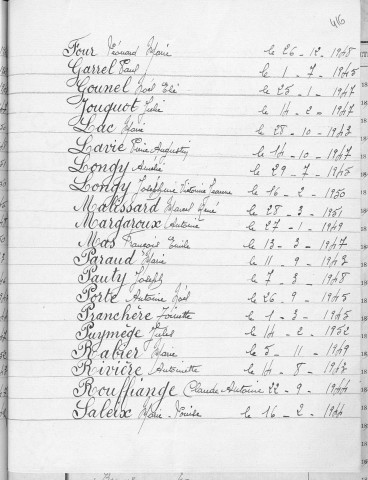 416
Four Léonard Marie le 26-12-1948
Garrel Paul le 1-7-1945
Gounel Noël Elie le 25-1-1947
Jouquot Julie le 14-2-1947
Lac Marie le 28-10-1943
Lavie Pierre Augustin le 14-10-1947
Longy Amélie le 29-7-1945
Longy Joséphine Victorine Jeanne le 16-2-1950
Malissard Marcel René le 28-3-1951
Margaroux Antoine le 27-1-1949
Mas François Emile le 13-3-1947
Paraud Marie le 11-9-1943
Pauty Joseph le 7-3-1948
Porte Antoine Noël le 26-9-1945
Pranchère Toinette le 1-3-1945
Puymège Jules le 14-2-1952
Rabier Marie le 5-11-1949
Rivière Antoinette le 14-8-1947
Rouffiange Claude Antoine 22-9-1944
Saleix Marie-Louise le 16-2-1944